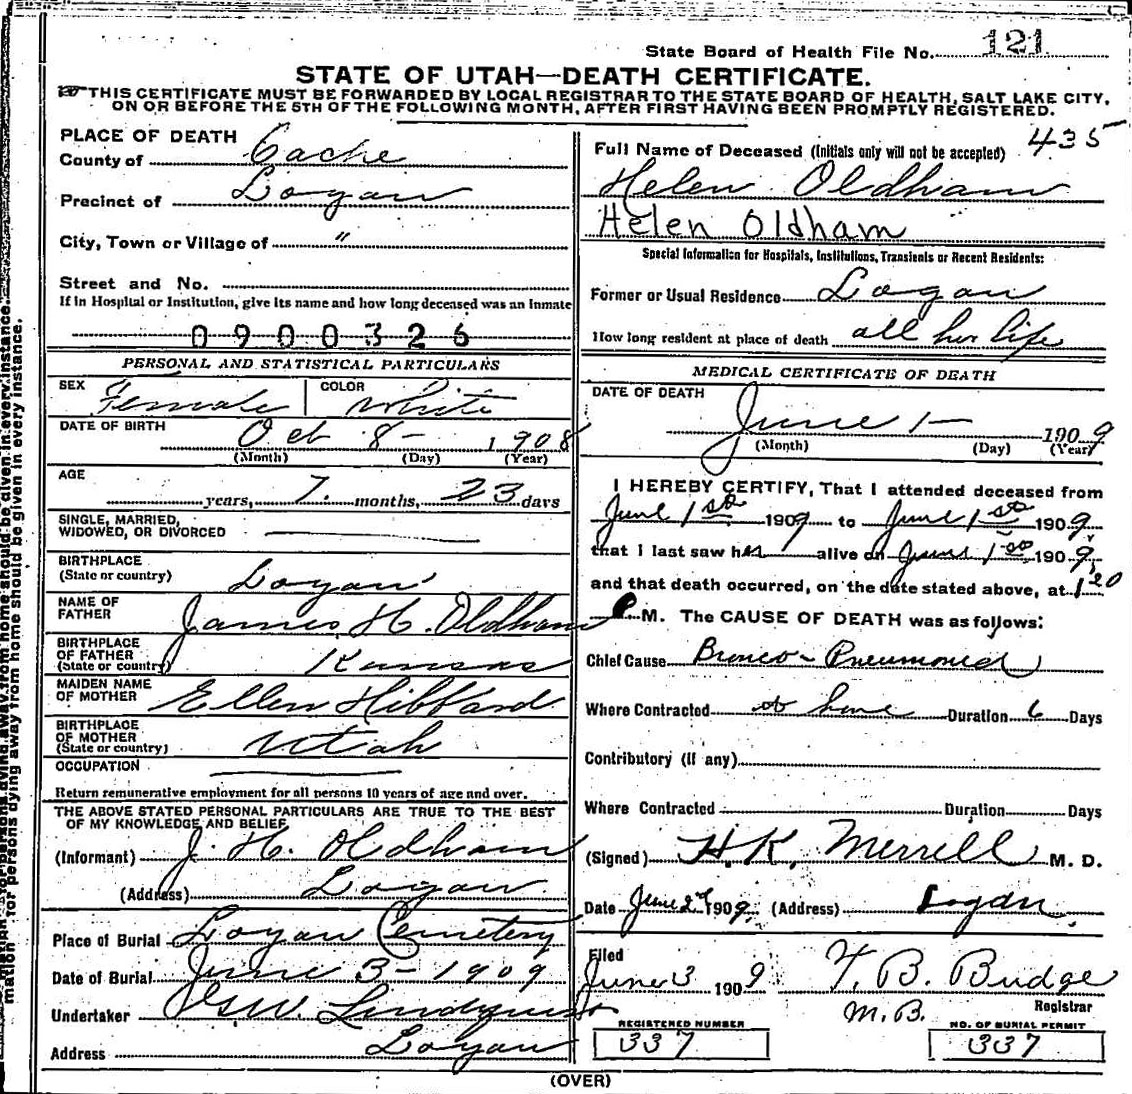 State Board of Health File No. 121
STATE OF UTAH—DEATH CERTIFICATE.
THIS CERTIFICATE MUST BE FORWARDED BY LOCAL REGISTRAR TO THE STATE BOARD OF HEALTH, SALT LAKE CITY,
ON OR BEFORE THE 5TH OF THE FOLLOWING MONTH, AFTER FIRST HAVING BEEN PROMPTLY REGISTERED.
PLACE OF DEATH
County of Cache
Precinct of Logan
City, Town or Village of "
Street and No.
If in Hospital or Institution, give its name and how long deceased was an Inmate
0900326
PERSONAL AND STATISTICAL PARTICULARS
SEX Female COLOR White
DATE OF BIRTH Oct 8 - 1908
(Month) (Day) (Year)
AGE years, 7. months, 23 days
SINGLE, MARRIED,
WIDOWED, OR DIVORCED
BIRTHPLACE
(State or country) Logan
NAME OF
FATHER James H. Oldham
BIRTHPLACE
OF FATHER
(State or country) Kansas
MAIDEN NAME
OF MOTHER Ellen Hibbard
BIRTHPLACE
OF MOTHER
(State or country) Utah
OCCUPATION
Return remunerative employment for all persons 10 years of age and over.
THE ABOVE STATED PERSONAL PARTICULARS ARE TRUE TO THE BEST
OF MY KNOWLEDGE AND BELIEF
(Informant) J. H. Oldham
(Address) Logan
Place of Burial Logan Cemetery
Date of Burial June 3 - 1909
Undertaker Lindquist
Address Logan
435
Full Name of Deceased (Initials only will not be accepted)
Helen Oldham
Helen Oldham
Special Information for Hospitals, Institutions, Transients or Recent Residents:
Former or Usual Residence Logan
How long resident at place of death all her life
MEDICAL CERTIFICATE OF DEATH
DATE OF DEATH
June 1 - 1909
(Month) (Day) (Year)
I HEREBY CERTIFY, That I attended deceased from
June 1st 1909 to June 1st 1909,
that I last saw her alive on June 1st 1909,
and that death occurred, on the date stated above, at 1 20
P M. The CAUSE OF DEATH was as follows:
Chief Cause Bronco-Pneumonia
Where Contracted at home Duration 6 Days
Contributory (If any)
Where Contracted Duration Days
(Signed) H. K. Merrell M. D.
Date June 2nd 1909. (Address) Logan.
Filed
June 3 1909 T. B. Budge
M.B. Registrar
REGISTERED NUMBER NO. OF BURIAL PERMIT
337 337
(OVER)
for persons dying away from home should be given in every instance.